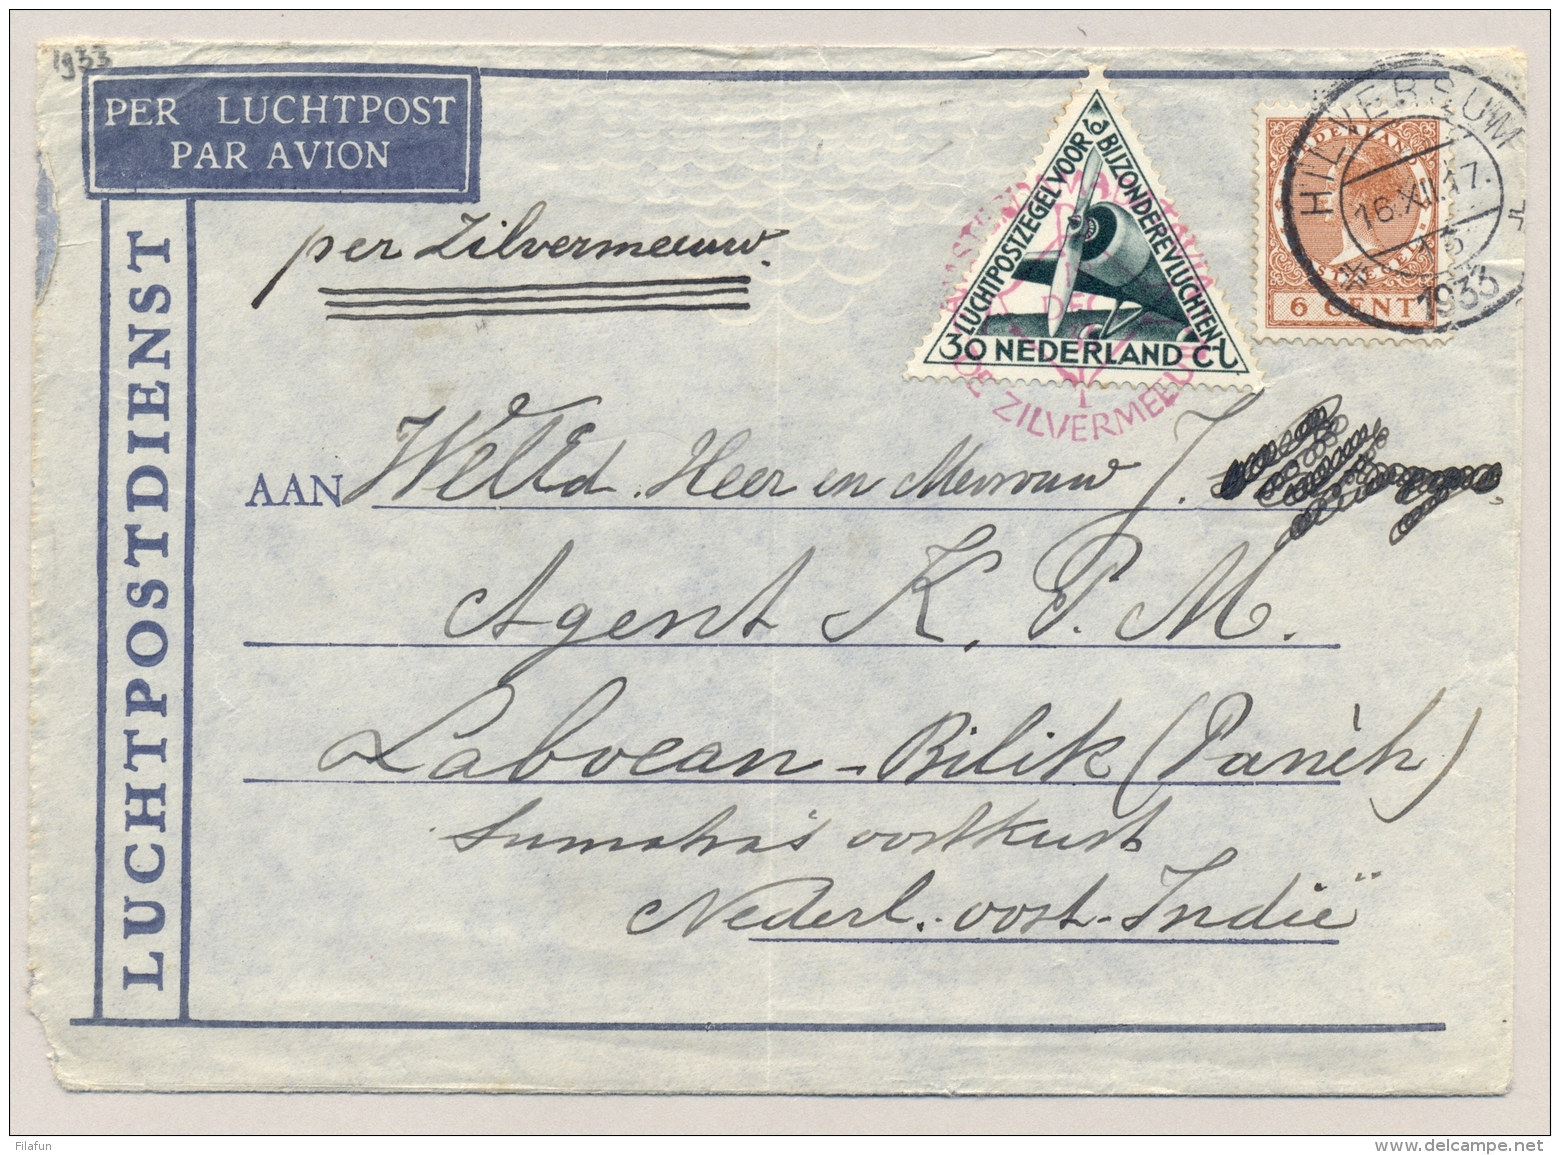 1933
PER LUCHTPOST
PAR AVION
LUCHTPOSTDIENST
per Zilvermeeuw.
LUCHTPOSTZEGEL VOOR
BIJZONDERE VLUCHTEN
30 NEDERLAND Ct
DEC
DE ZILVERMEEUW
NEDERLAND
6 CENT
HILVERSUM
16.XII.17.
1933
AAN WelEd. Heer en Mevrouw J.
Agent K. P. M.
Laboean-Bilik (Panèh)
Sumatra's oostkust
Nederl. oost-Indië
Filafun
www.delcampe.net